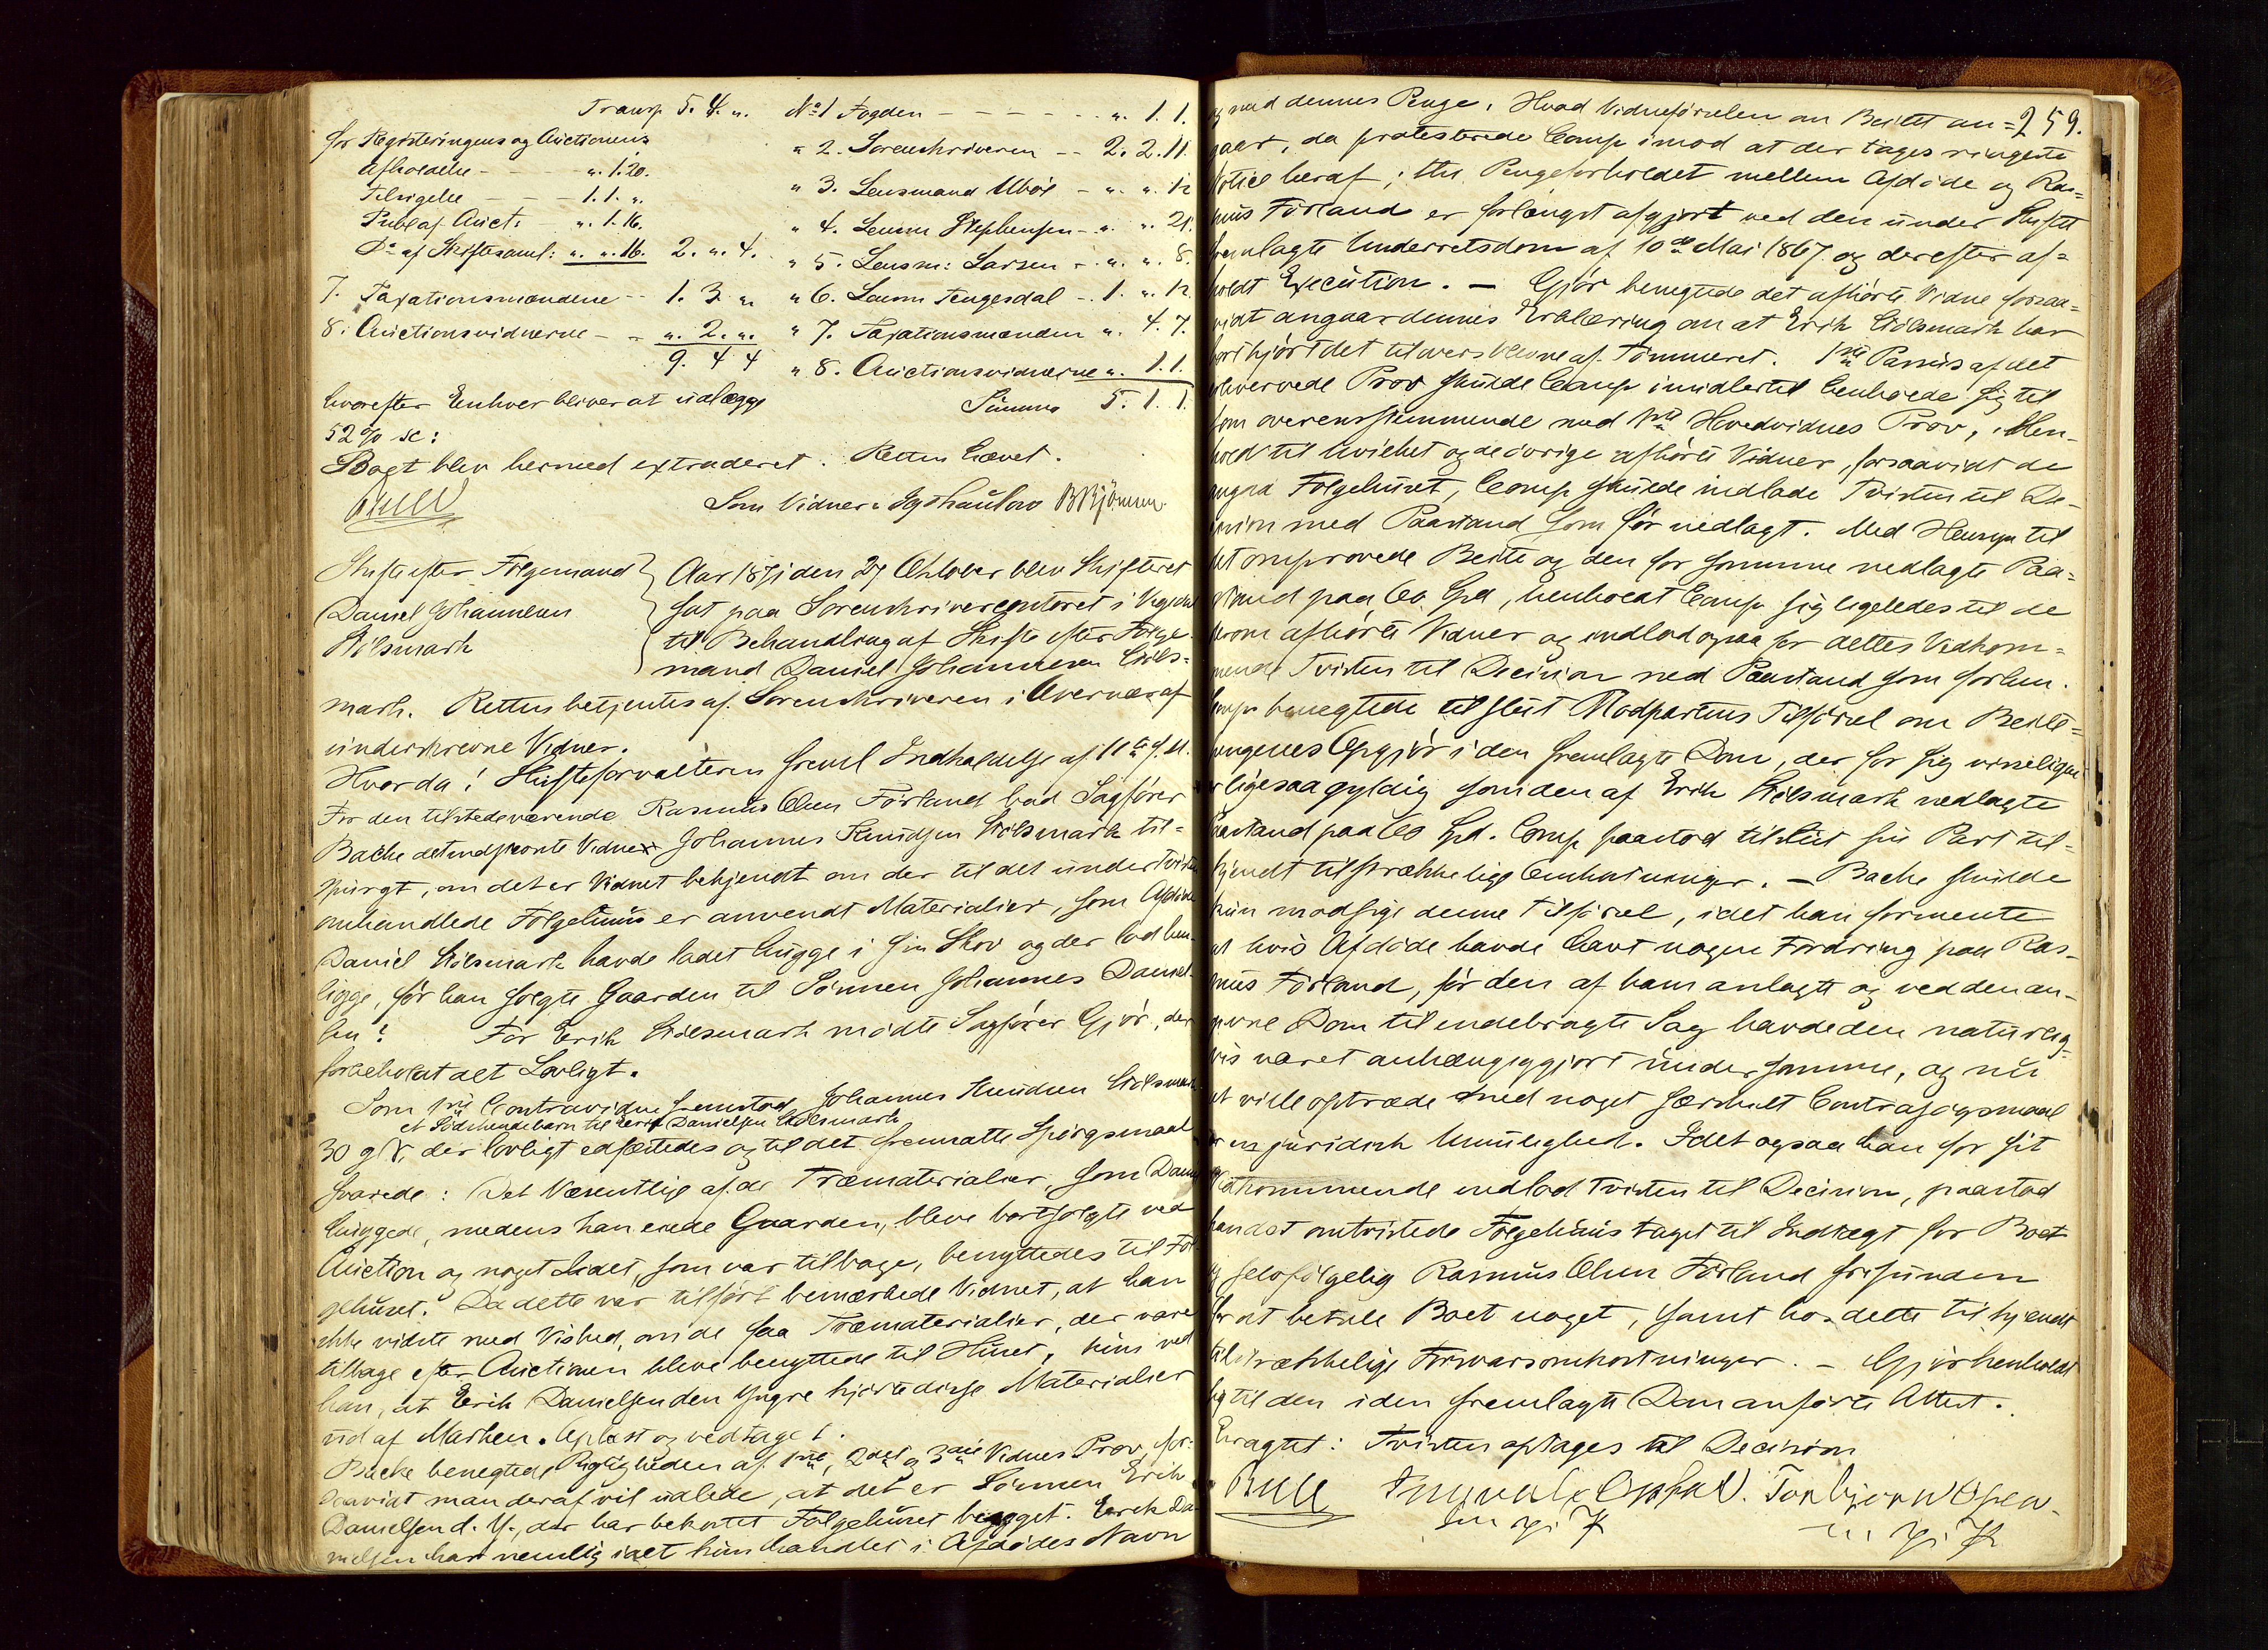 Transp 5. 4. "
for Registeringens og Auctionens
Afholdelse - - - ". 1. 20.
Tilsigelse - - - 1. 1. ".
Publ af Auct: - ". 1. 16.
Do af Skiftesaml: ". ". 16. 2. ". 4.
7. Taxationsmændene - - 1. 3. "
8. Auctionsvidnerne - - ". 2. ".
9. 4 4
hvorefter Enhver bliver at udlægge
52 % sc:
No 1 Fogden - - - - - - ". 1. 1.
" 2. Sorenskriveren - - 2. 2. 11.
" 3. Lensmand Ubøe - ". ". 12
" 4. Lensm Stephensen - ". ". 21.
" 5. Lensm: Larsen - ". ". 8.
" 6. Lensm Tengesdal - 1. ". 12
" 7. Taxationsmænden ". 4. 7.
" 8. Auctionsvidnerne ". 1. 1.
Summa 5. 1. 1.
Bogt blev hermed extraderet. Retten hævet.
Bull Som Vidner: BBjønnen
Skifte efter Følgemand
Daniel Johannesen
Stølsmark
Aar 1871 den 27 Oktober blev Skifteret
sat paa Sorenskrivercontoret i
til Behandling af Skifte efter Følge-
mand Daniel Johannesen Støls-
mark. Retten betjentes af Sorenskriveren i Overvær af
underskrevne Vidner.
Hvorda! Skifteforvalteren freml Indkaldelse af 11te d. M.
For den tilstedeværende Rasmus Olsen Førland bad Sagfører
Bache det indstevnte Vidne Johannes Knudsen Stølsmark til-
spurgt, om det er Vidnet bekjendt om der til det under Tvisten
omhandlede Følgehuus er anvendt Materialier, som Afdøde
Daniel Stølsmark havde ladet hugge i sin Skov og der lod hen-
ligge, før han solgte Gaarden til Sønnen Johannes Daniel-
sen? For Erik Stølsmark mødte Sagfører Gjør, der
forbeholdt alt Lovligt.
Som 1ste Contravidne fremstod Johannes Knudsen Stølsmark
et Sødskendebarn til Erik Danielsen Stølsmark
30 g Gl. der lovligt edfæstedes og til det fremsatte Spørgsmaal
svarede: Det Væsentlige af de Træmaterialier, som Daniel
huggede, medens han eiede Gaarden, bleve bortsolgte ved
Auction og noget Lidet, som var tilbage, benyttedes til Føl-
gehuset. Da dette var tilført bemærkede Vidnet, at han
ikke vidste med Vished, om de faa Træmaterialier, der vare
tilbage efter Auctionen bleve benyttede til Huset, kuns ved
han, at Erik Danielsen den Yngre kjørte disse Materialier
ud af Marken. Oplæst og vedtaget.
Bache benegtede Rigtigheden af 1ste, 2det og 3die Vidnes Prov, for-
saavidt man deraf vil udlede, at det er Sønnen Erik
Danielsen d. Y., der har bekostet Følgehuset bygget. Erik Da-
nielsen har nemlig idet hun handlet i Afdødes Navn
259.
og med dennes Penge. Hvad Vidneførselen om Beitet an-
gaar, da protesterede Comp imod at der tages ringeste
Notice heraf; thi Pengeforholdet mellem Afdøde og Ras-
mus Førland er forlængst afgjort ved den under Skiftet
fremlagte Underretsdom af 10de Mai 1867 og derefter af-
holdt Execution. - Gjør benegtede det afhørte Vidne forsaa-
vidt angaar dennes Erklæring om at Erik Stølsmark har
bortkjørt det tiloversblevne af Tømmeret. 1ste Passus af det
erhvervede Prov skulde Comp imidlertid henholde sig til
som overensstemmende med 1ste Hovedvidnes Prov, Hen-
hold til hvilket og de øvrige afhørte Vidner, forsaavidt de
angaa Følgehuset, Comp skulde indlade Tvisten til De-
cision med Paastand som før nedlagt. Med Hensyn til
det omprovede Beite og den for samme nedlagte Paa-
stand paa 60 Spd, henholdt Comp sig ligeledes til de
derom afhørte Vidner og indlod ogsaa for dettes Vedkom-
mende Tvisten til Decision med Paastand som forhen.
Comp benegtede tilslut Modpartens Tilførsel om Beite-
pengenes Opgjør i den fremlagte Dom, der for sig visseligen
er ligesaa gyldig som den af Erik Stølsmark nedlagte
Paastand paa 60 Spd. Comp paastod tilslut sin Part til-
kjendt tilstrækkelige Omkostninger. - Bache skulde
kun modsige denne Tilførsel, idet han formente
at hvis Afdøde havde havt nogen Fordring paa Ras-
mus Førland, før den af ham anlagte og ved den an-
givne Dom tilendebragte Sag havde den naturlig-
vis været anhængiggjort under samme, og nu
at ville optræde med noget særskilt Contrasøgsmaal
er en juridisk Umulighed. Idet ogsaa han for sit
Vedkommende indlod Tvisten til Decision, paastod
han det omtvistede Følgehuus taget til Indtægt for Boet
og selvfølgelig Rasmus Olsen Førland frifunden
for at betale Boet noget, samt hos dette tilkjendt
tilstrækkelige Forsvarsomkostninger. - Gjør henholdt
sig til den i den fremlagte Dom anførte Attest.
Eragtet: Tvisten optages til Decision
Bull Torbjørn Olsen